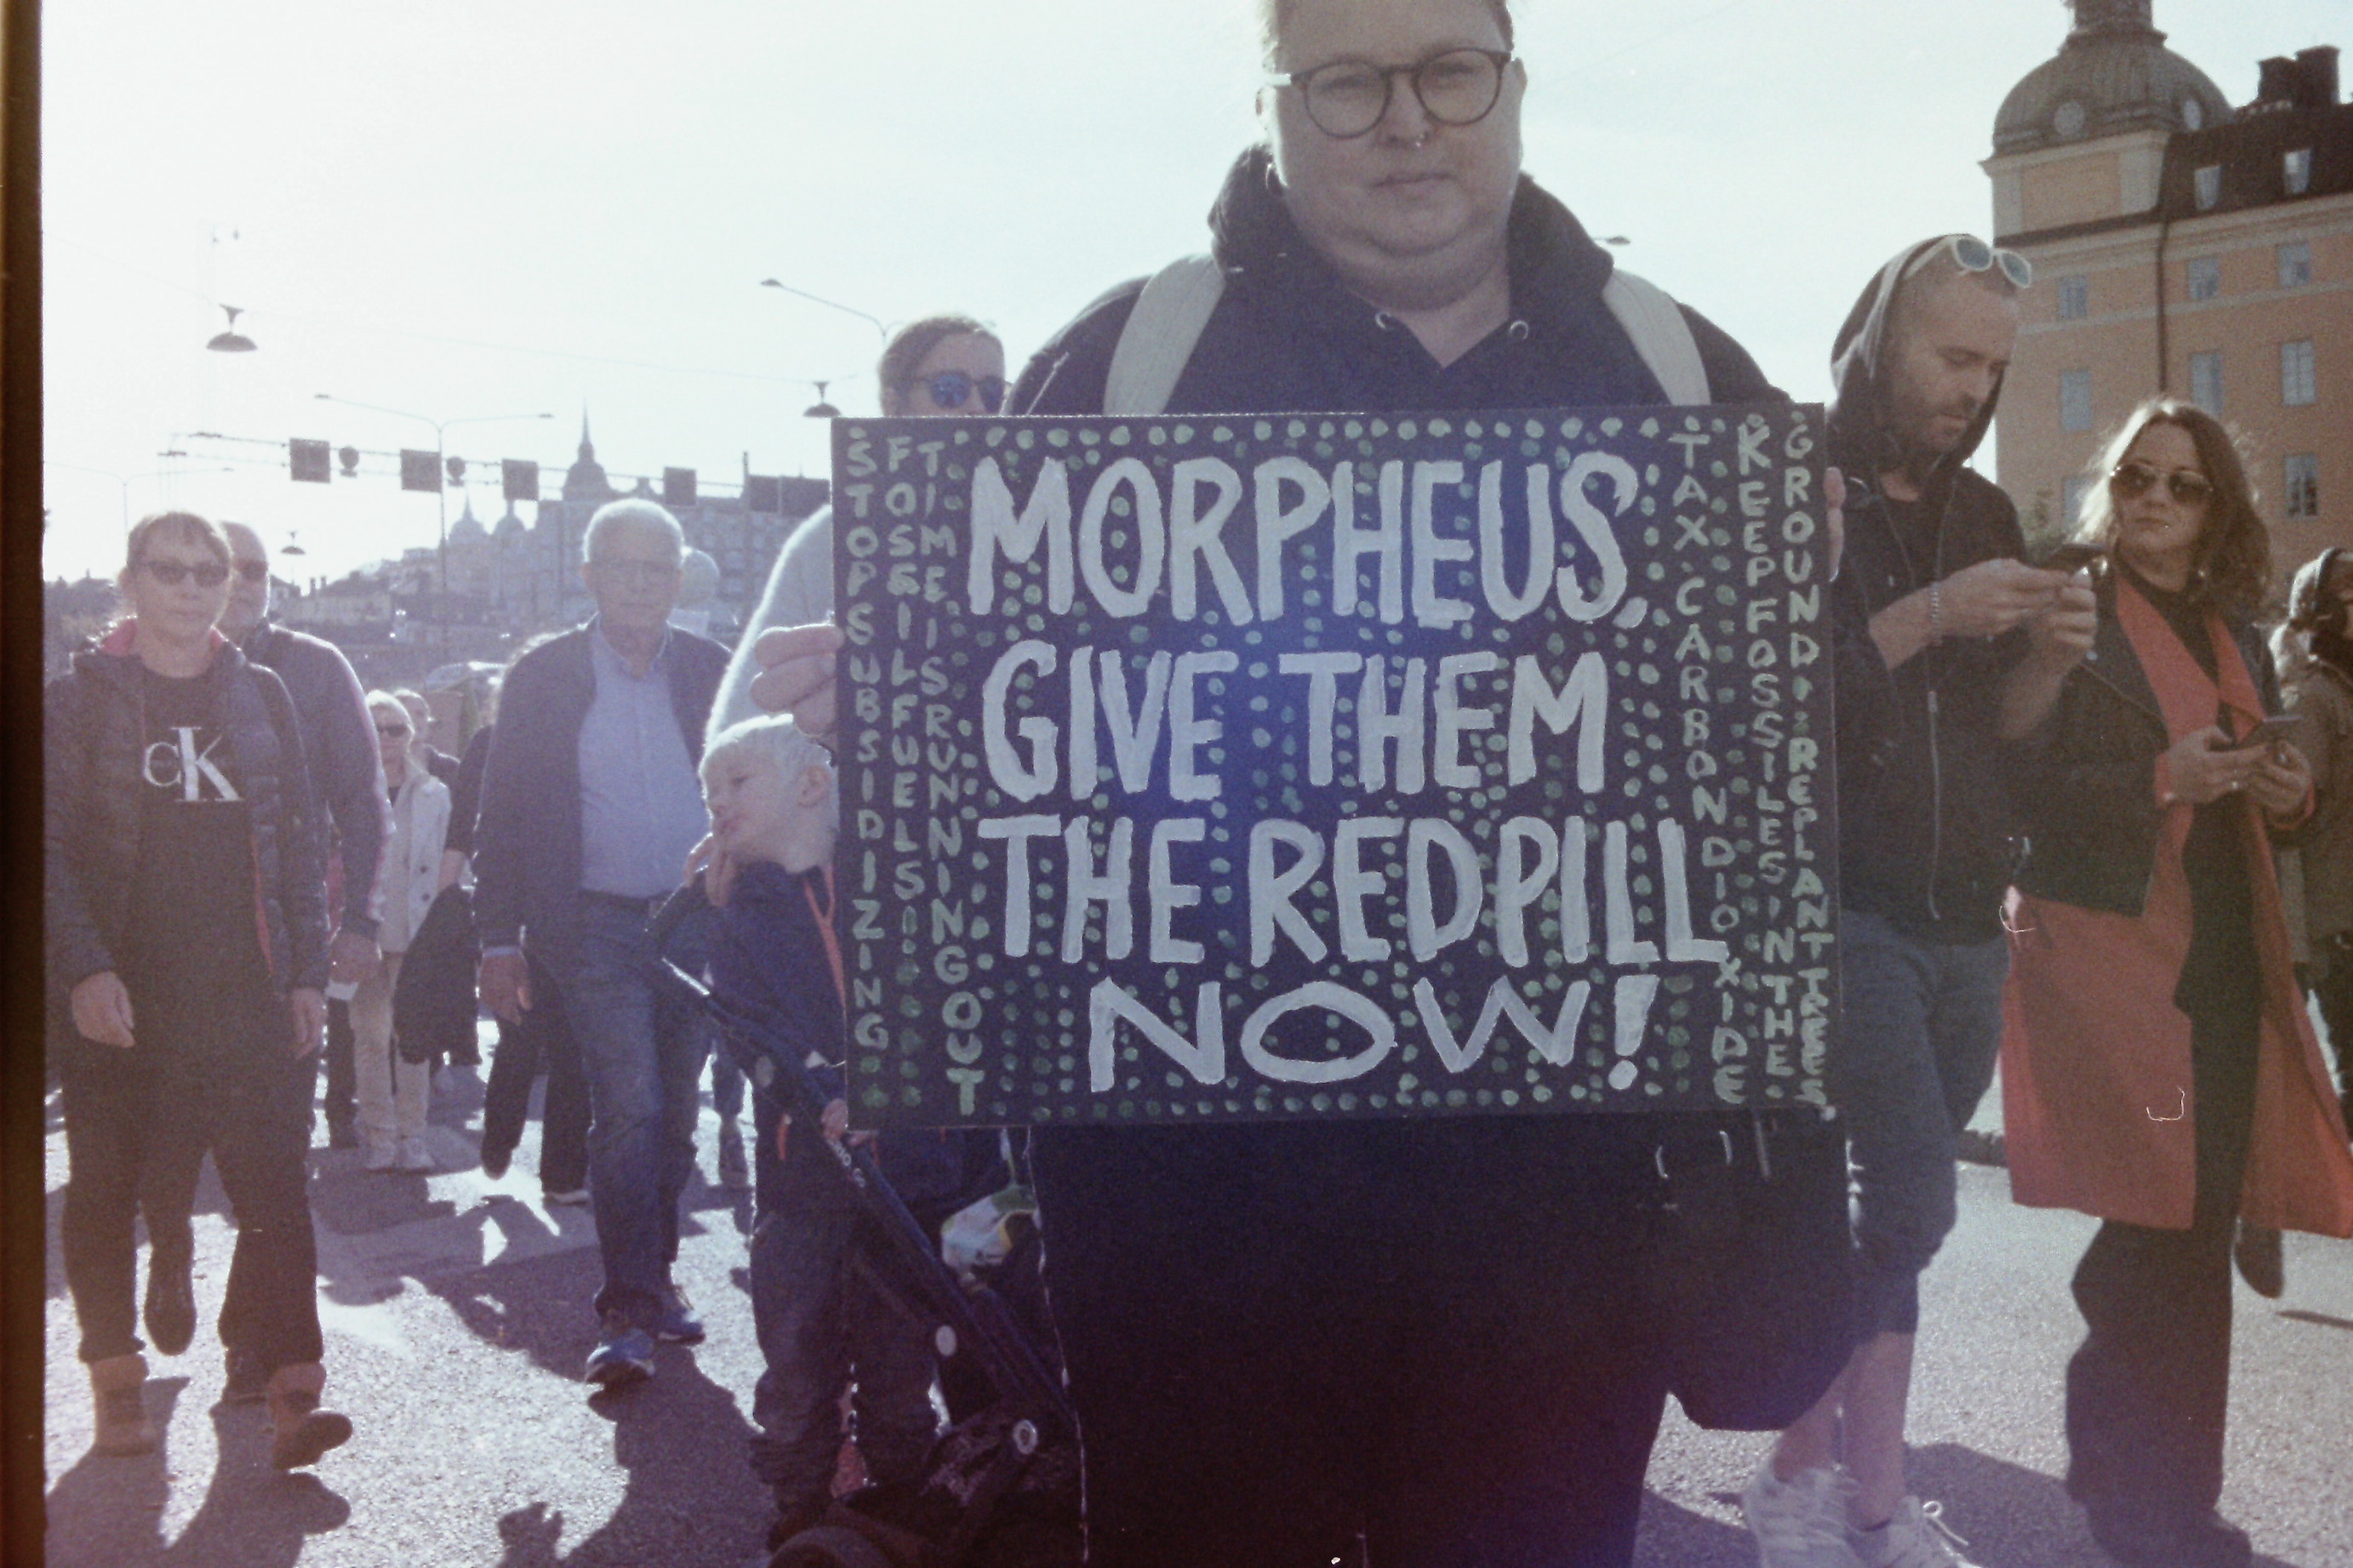 CK
STOP SUBSIDIZING
FOSSIL FUELS
TIME IS RUNNING OUT
MORPHEUS,
GIVE THEM
THE REDPILL
NOW!
TAX CARBON DIOXIDE
KEEP FOSSILES IN THE
GROUND REPLANT TREES